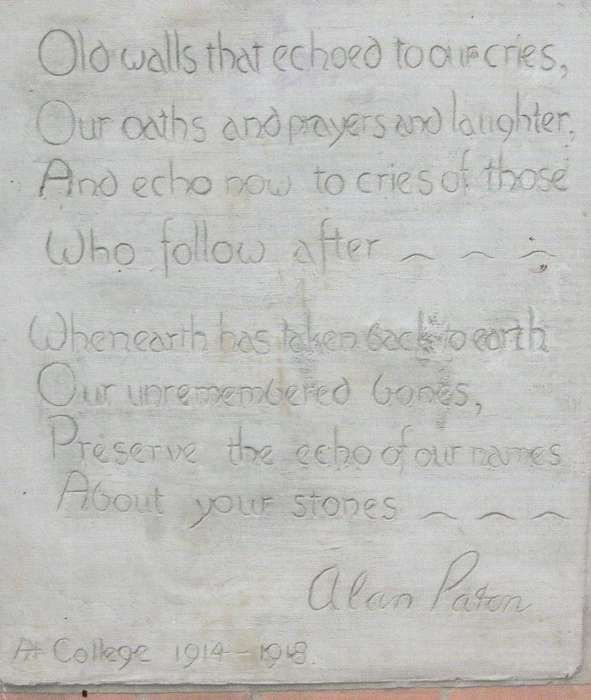 Old walls that echoed to our cries,
Our oaths and prayers and laughter,
And echo now to cries of those
Who follow after ~ ~ ~
When earth has taken back to earth
Our unremembered bones,
Preserve the echo of our names
About your stones ~ ~ ~
Alan Paton
At College 1914–1918.